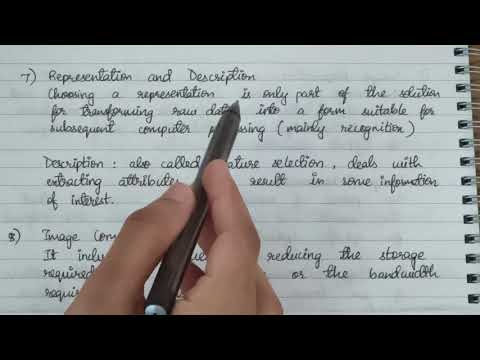 7) Representation and Description
Choosing a representation is only part of the solution
for transforming raw data into a form suitable for
subsequent computer processing (mainly recognition)
Description : also called feature selection, deals with
extracting attributes result in some information
of interest.
8) Image
It reducing the storage
required or the bandwidth